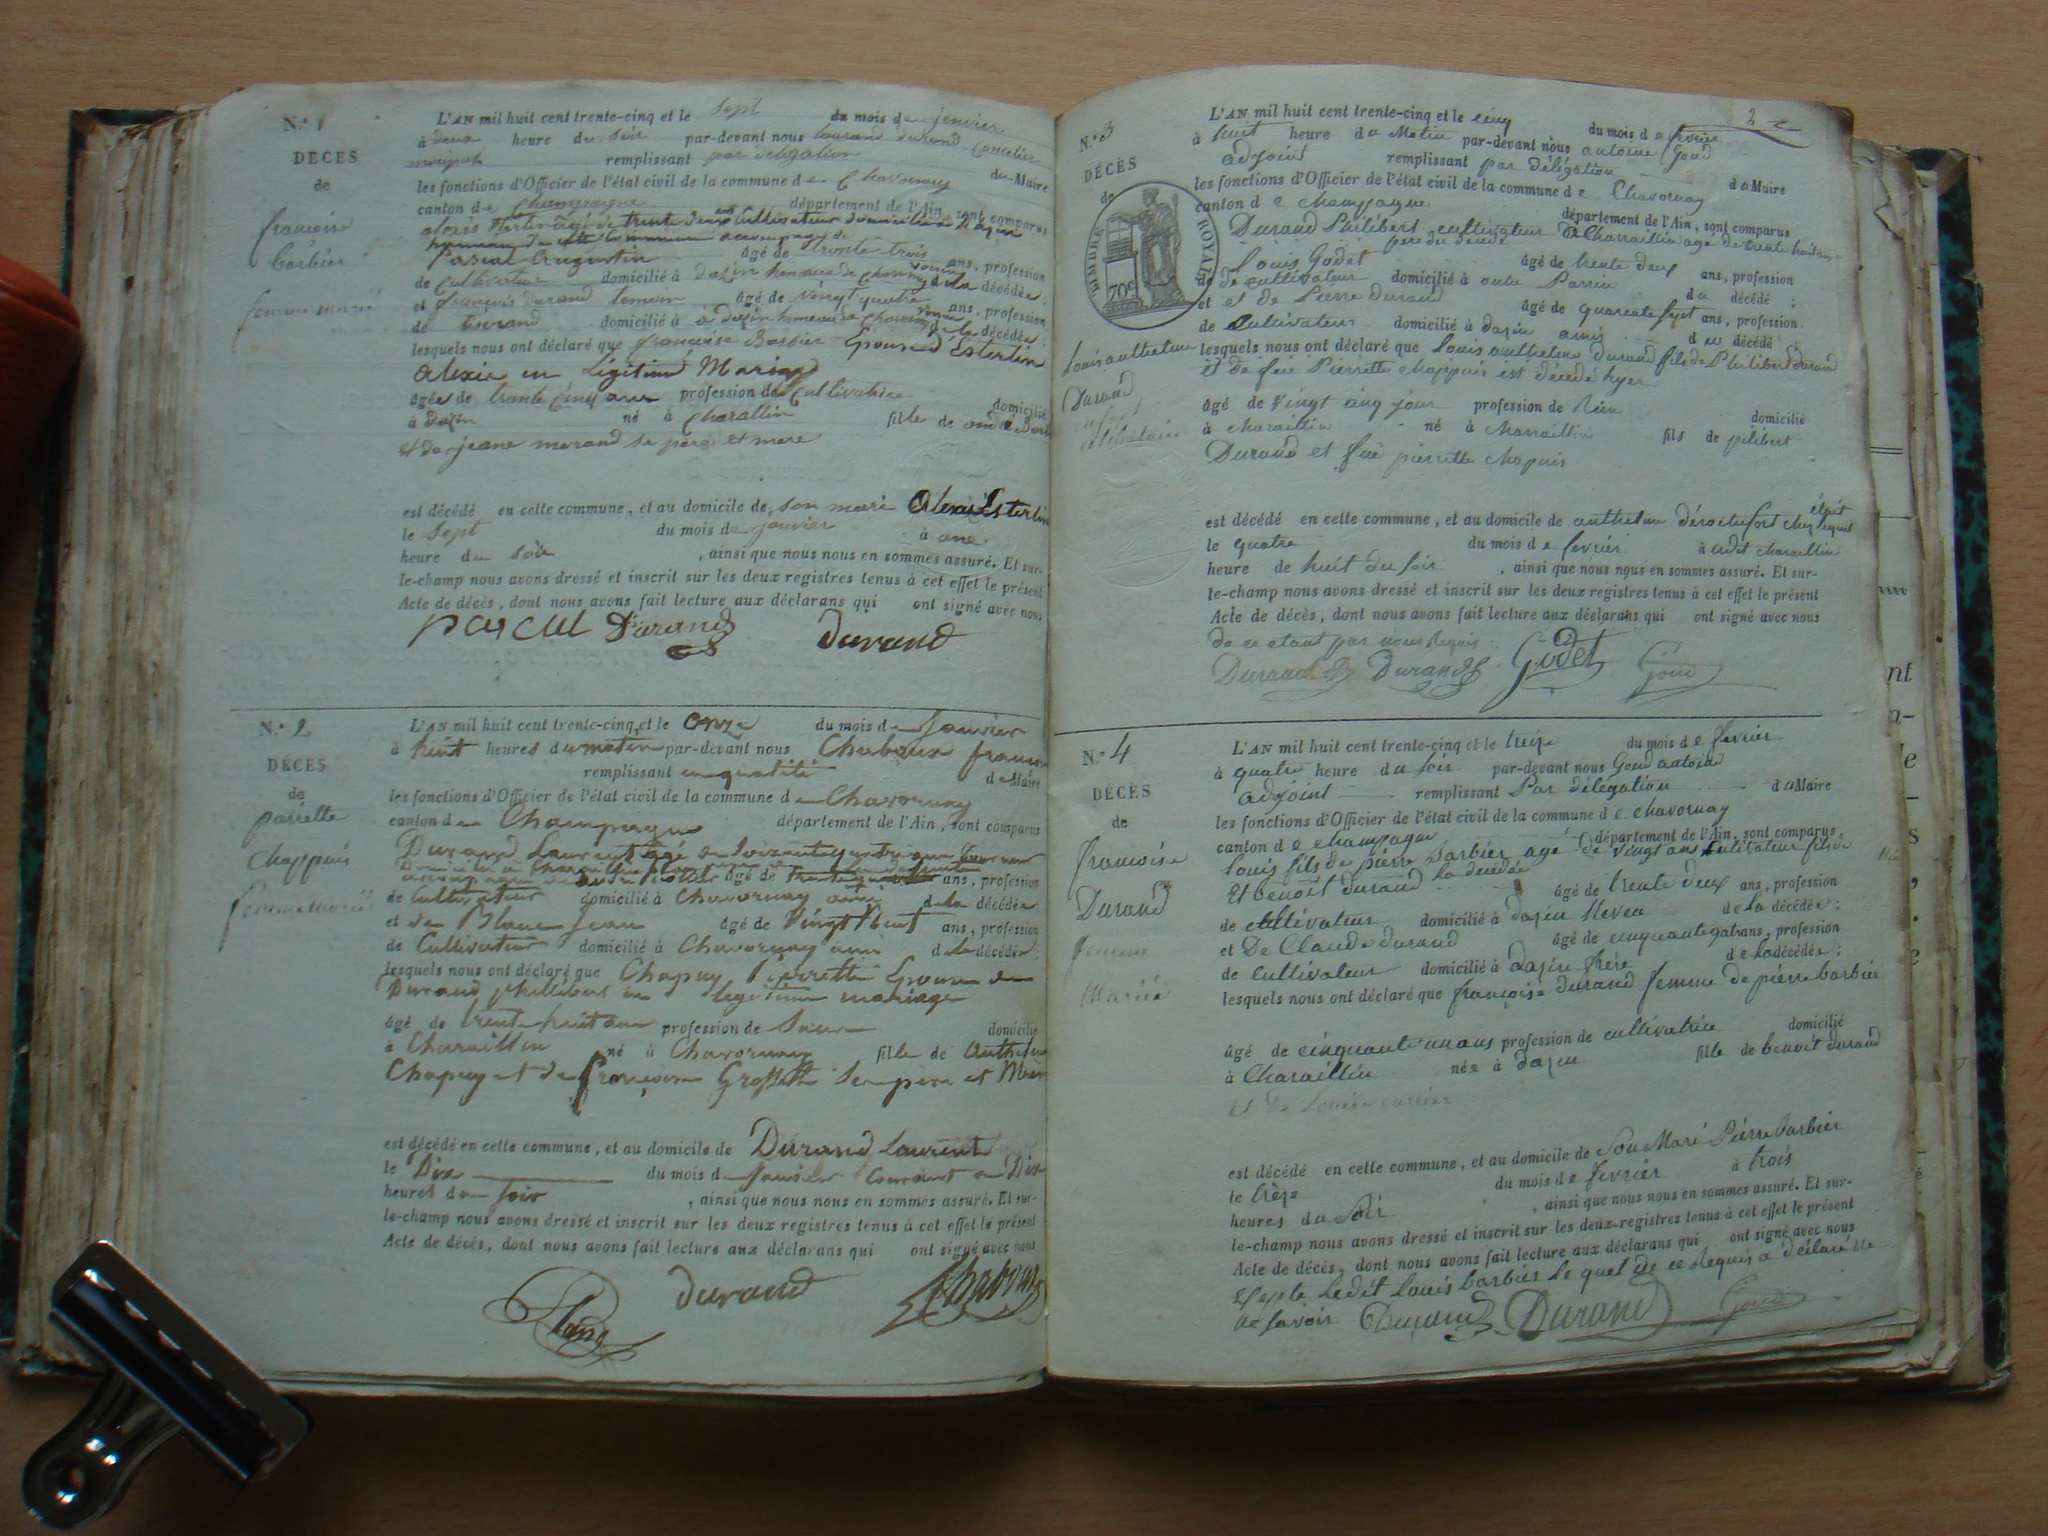 N.° 1
DÉCÈS
de
françoise
barbier
femme mariée
L'AN mil huit cent trente-cinq et le sept du mois de janvier
à deux heure du soir par-devant nous laurand durand
remplissant par délégation du Maire
les fonctions d'Officier de l'état civil de la commune de Chavornay
canton de Champagne département de l'Ain, sont comparus
âgé de trente deux cultivateur domicilié à dazin
hameau de cette commune accompagné de
Pascal Augustin âgé de trente trois ans, profession
de cultivateur domicilié à dazin hameau de voisin de la décédée
et françois durand âgé de vingt quatre ans, profession
de domicilié à à dazin hameau de de la décédée ;
lesquels nous ont déclaré que françoise Barbier Epouse d'Esterlin
alexis en Légitime Mariage
âgée de trante cinq ans profession de cultivatrice domicilié
à dazin né à Charallin fille de
et de jeane morand se père et mere
est décédé en cette commune, et au domicile de son mari Alexis Esterlin
le sept du mois de janvier à une
heure du soir , ainsi que nous nous en sommes assuré. Et sur-
le-champ nous avons dressé et inscrit sur les deux registres tenus à cet effet le présent
Acte de décès, dont nous avons fait lecture aux déclarans qui ont signé avec nous
pascal Durand durand
N.° 2
DÉCÈS
de
chappuis
femme mariée
L'AN mil huit cent trente-cinq et le onze du mois de Janvier
à huit heures du matin par-devant nous
remplissant en qualité de Maire
les fonctions d'Officier de l'état civil de la commune de Chavornay
canton de Champagne département de l'Ain, sont comparus
Durand Laurent âgé de soixante quatre ans
âgé de ans, profession
de Cultivateur domicilié à Chavornay ami de la décédée
et de Blanc Jean âgé de Vingt neuf ans, profession
de Cultivateur domicilié à Chavornay ami de la décédée ;
lesquels nous ont déclaré que Chapuy Pierrette Epouse de
Durand phillibert en légitime mariage
âgé de trente huit ans profession de domicilié
à Charaillin né à Chavornay fille de Anthelme
Chapuy et de françoise se père et Mère
est décédé en cette commune, et au domicile de Durand Laurent
le Dix du mois de Janvier courant à Dix
heures du soir , ainsi que nous nous en sommes assuré. Et sur-
le-champ nous avons dressé et inscrit sur les deux registres tenus à cet effet le présent
Acte de décès, dont nous avons fait lecture aux déclarans qui ont signé avec nous
Blanc durand
2
N.° 3
DÉCÈS
de
TIMBRE ROYAL
70c
Louis anthelme
Durand
L'AN mil huit cent trente-cinq et le cinq du mois de fevrier
à huit heure du Matin par-devant nous antoine Goud
adjoint remplissant par délégation du Maire
les fonctions d'Officier de l'état civil de la commune de Chavornay
canton de champagne département de l'Ain, sont comparus
Durand Philibert cultivateur à Charaillin âgé de trente huit ans
père du décédé
louis Godet âgé de trente deux ans, profession
de de cultivateur domicilié à du décédé ;
et et de Pierre durand âgé de quarante sept ans, profession
de Cultivateur domicilié à dazin ami du décédé ;
lesquels nous ont déclaré que louis anthelme durand fils de Philibert durand
et de feue Pierrette chappuis est décédé hyer
âgé de vingt cinq jour profession de Rien domicilié
à charaillin né à charaillin fils de pilibert
Durand et feue pierrette chapuis
est décédé en cette commune, et au domicile de anthelme chez lequel était
le quatre du mois de fevrier à udit charaillin
heure de huit du soir , ainsi que nous nous en sommes assuré. Et sur-
le-champ nous avons dressé et inscrit sur les deux registres tenus à cet effet le présent
Acte de décès, dont nous avons fait lecture aux déclarans qui ont signé avec nous
de ce etant par nous Requis
Durand Durand Godet Goud
N.° 4
DÉCÈS
de
françoise
Durand
femme
Mariée
L'AN mil huit cent trente-cinq et le treize du mois de fevrier
à quatre heure du soir par-devant nous Goud antoine
adjoint remplissant Par délégation du Maire
les fonctions d'Officier de l'état civil de la commune de chavornay
canton de champagne département de l'Ain, sont comparus
louis fils de pierre barbier agé de vingt ans Cultivateur fils de
la décédée
Et benoît durand âgé de trente deux ans, profession
de cultivateur domicilié à dazin Neveu de la décédée ;
et De Claude durand âgé de cinquante ans, profession
de cultivateur domicilié à dazin frère de la décédée ;
lesquels nous ont déclaré que françoise durand femme de pierre barbier
âgé de cinquante un ans profession de cultivatrice domicilié
à Charaillin née à dazin fille de benoît durand
et de Louise
est décédé en cette commune, et au domicile de Son Mari Pierre barbier
le trèze du mois de fevrier à trois
heures du Soir , ainsi que nous nous en sommes assuré. Et sur-
le-champ nous avons dressé et inscrit sur les deux registres tenus à cet effet le présent
Acte de décès, dont nous avons fait lecture aux déclarans qui ont signé avec nous
Exepte Ledit Louis barbier le quel de ce Requis a déclaré ne
savoir Durand Durand Goud